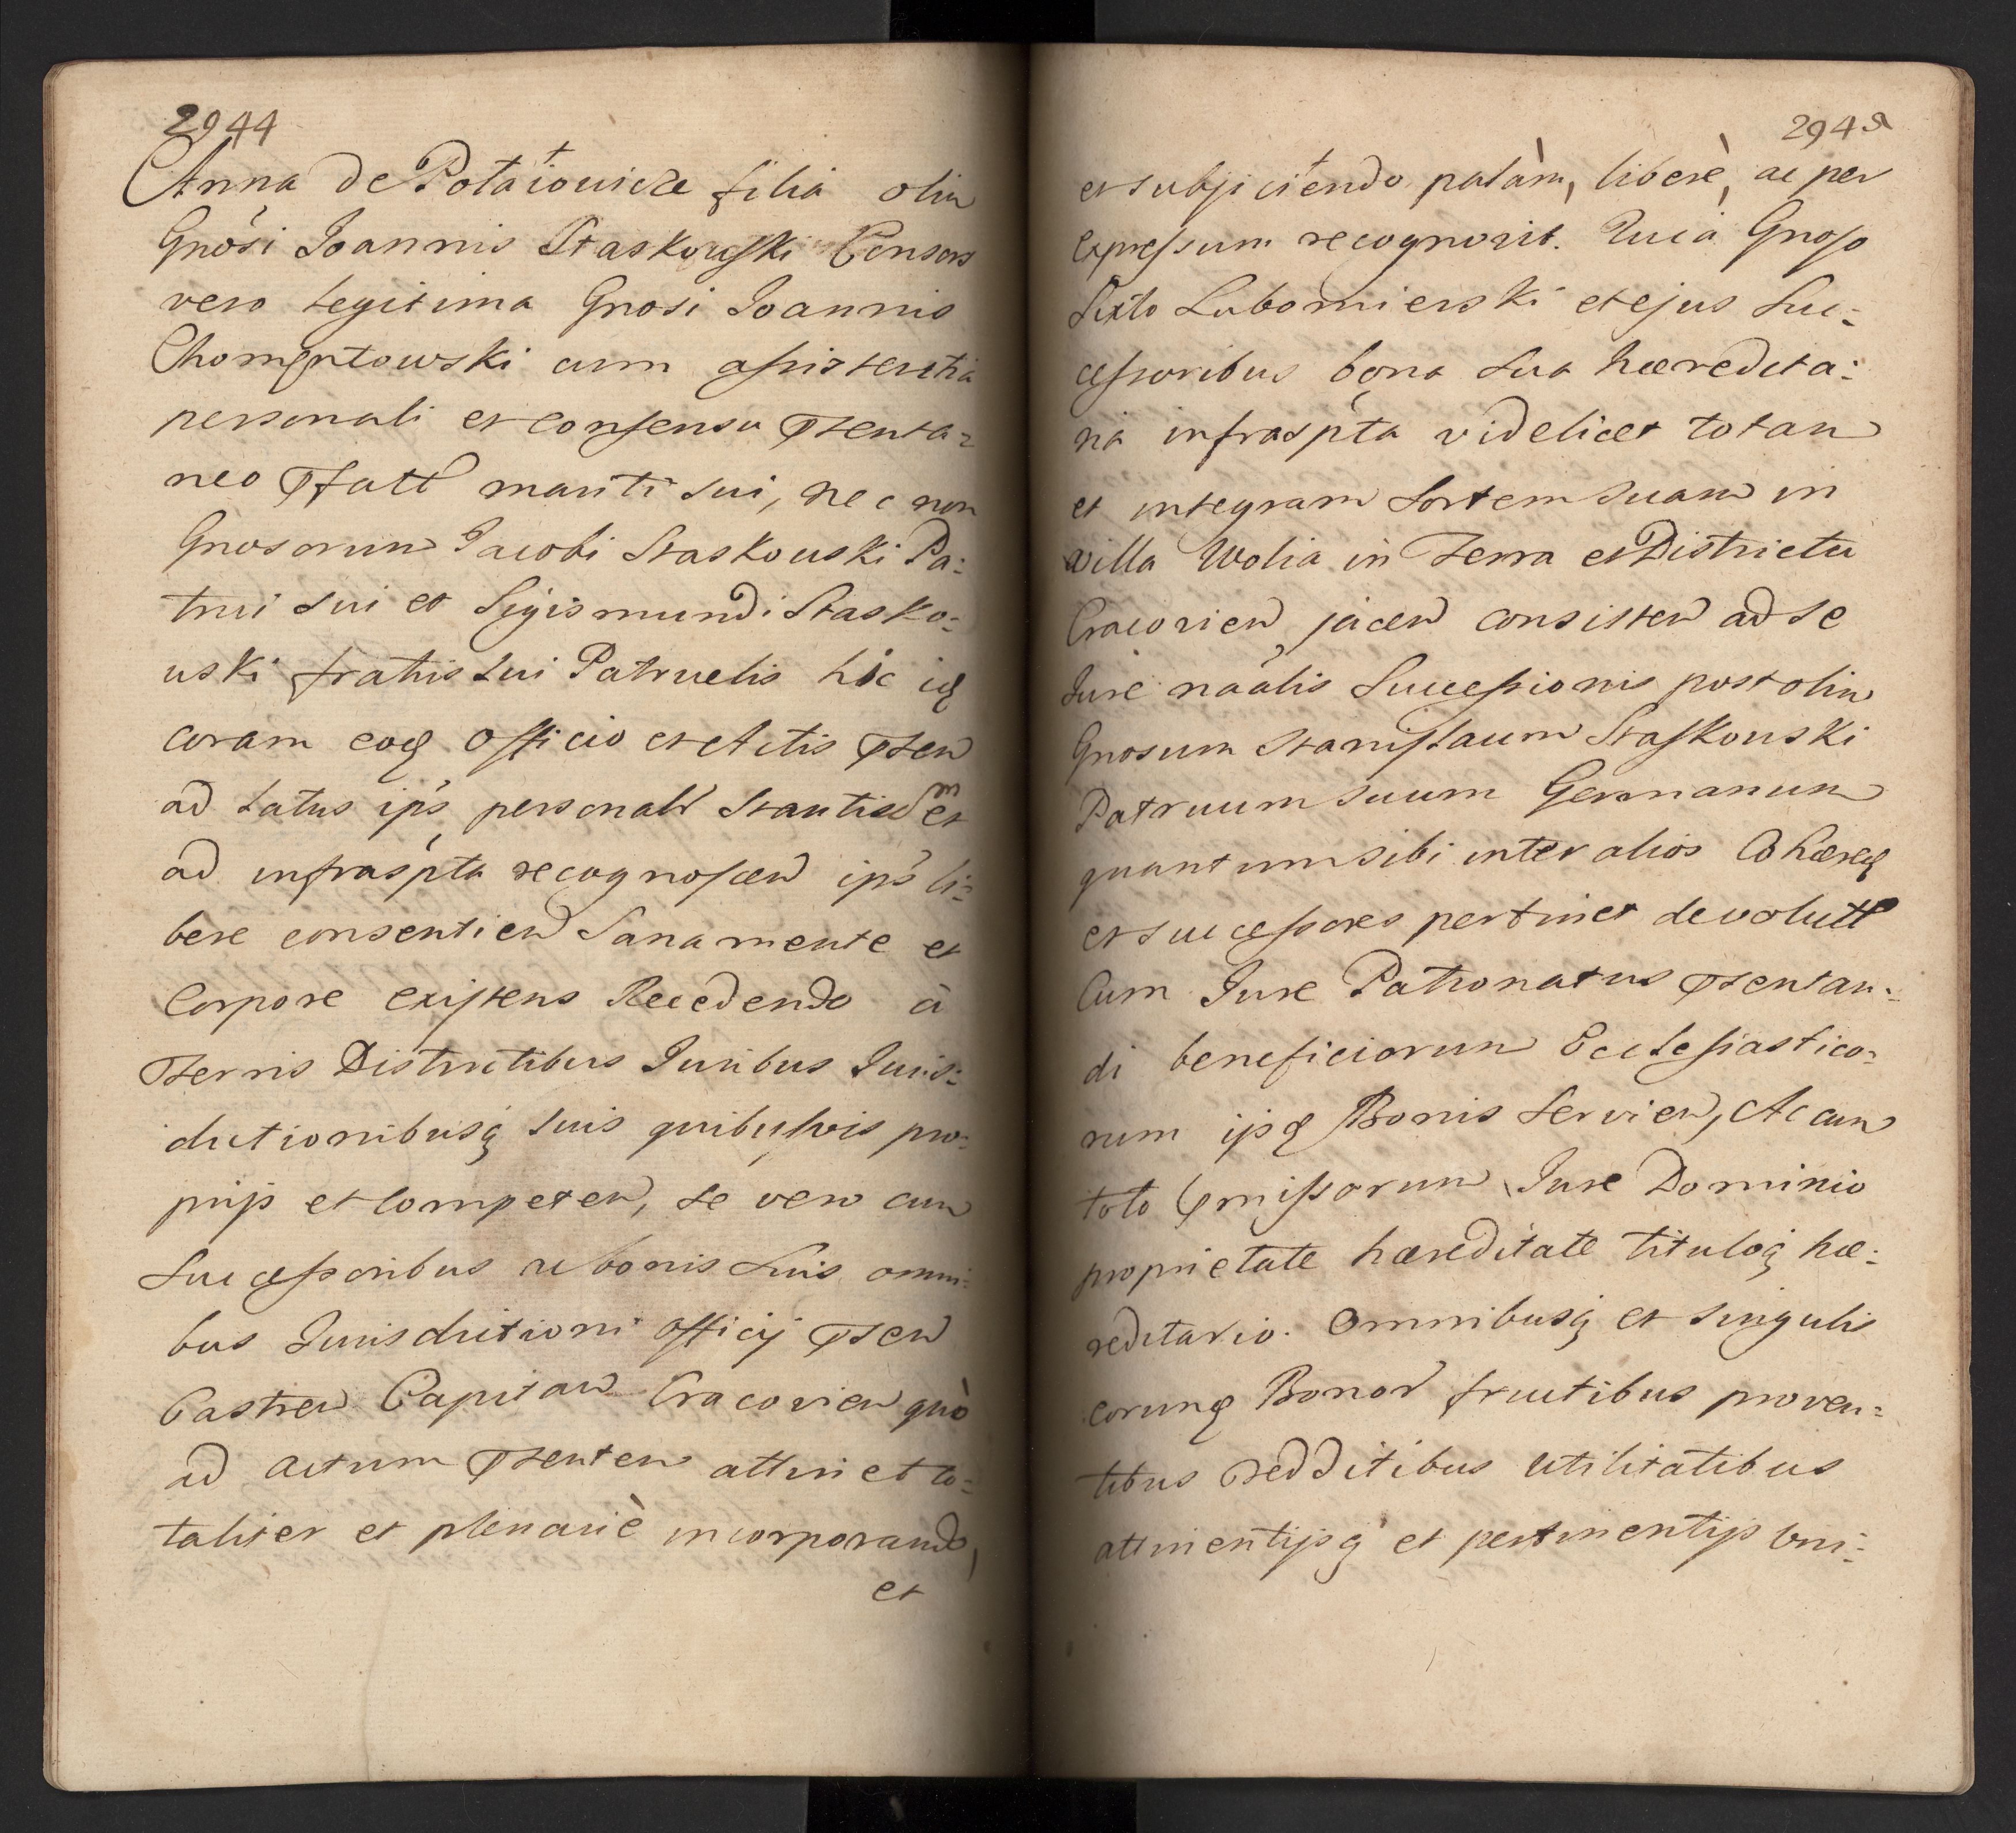 2944
Anna de Potaiowicze filia olim
Gnosi Joannis Staskowski Consors
vero legitima Gnosi Joannis
Chomentowski cum assistentia
personali et consensu Psenta=
neo Pfatt mariti sui, nec non
Gnosorum Jacobi Staskouski Pa:
trui sui et Sigismundi Stasko:
uski fratris sui Patruelis hic ioq
coram eoq officio et Actis Psen
ad Latus ips personalr Stantium et
ad infraspta recognoscen ips li:
bere consentien Sana mente et
Corpore existens Recedendo à
Terris Districtibus Juribus Juris:
dictionibusq suis quibusvis pro:
prijs et competen, se vero cum
Successoribus ac bonis suis omni:
bus Jurisdictioni officij Psen
Castren Capitan Cracovien quò
ad actum Psentem attinet to=
taliter et plenariè incorporando,
et
2945
et subjiciendo palàm, liberè, ac per
expressum recognovit. Quia Gnoso
Sixto Lubomierski et ejus Suc:
cessoribus bona sua hæredita:
ria infraspta videlicet totam
et integram Sortem suam in
villa Wolia in Terra et Districtu
Cracovien jacen consisten ad se
Jure naàlis Successionis post olim
Gnosum Stanislaum Staskouski
Patruum suum Germanum
quantum sibi inter alios Cohæreq
et successores pertinet devolutt
Cum Jure Patronatus Psentan:
di beneficiorum Ecclesiastico:
rum ijsq Bonis Servien, Ac cum
toto Pmissorum Jure Dominio
proprietate hæreditate tituloq hæ:
reditario. Omnibusq et singulis
eorumq Bonor fructibus proven:
tibus redditibus utilitatibus
attinentijsq et pertinentijs uni: